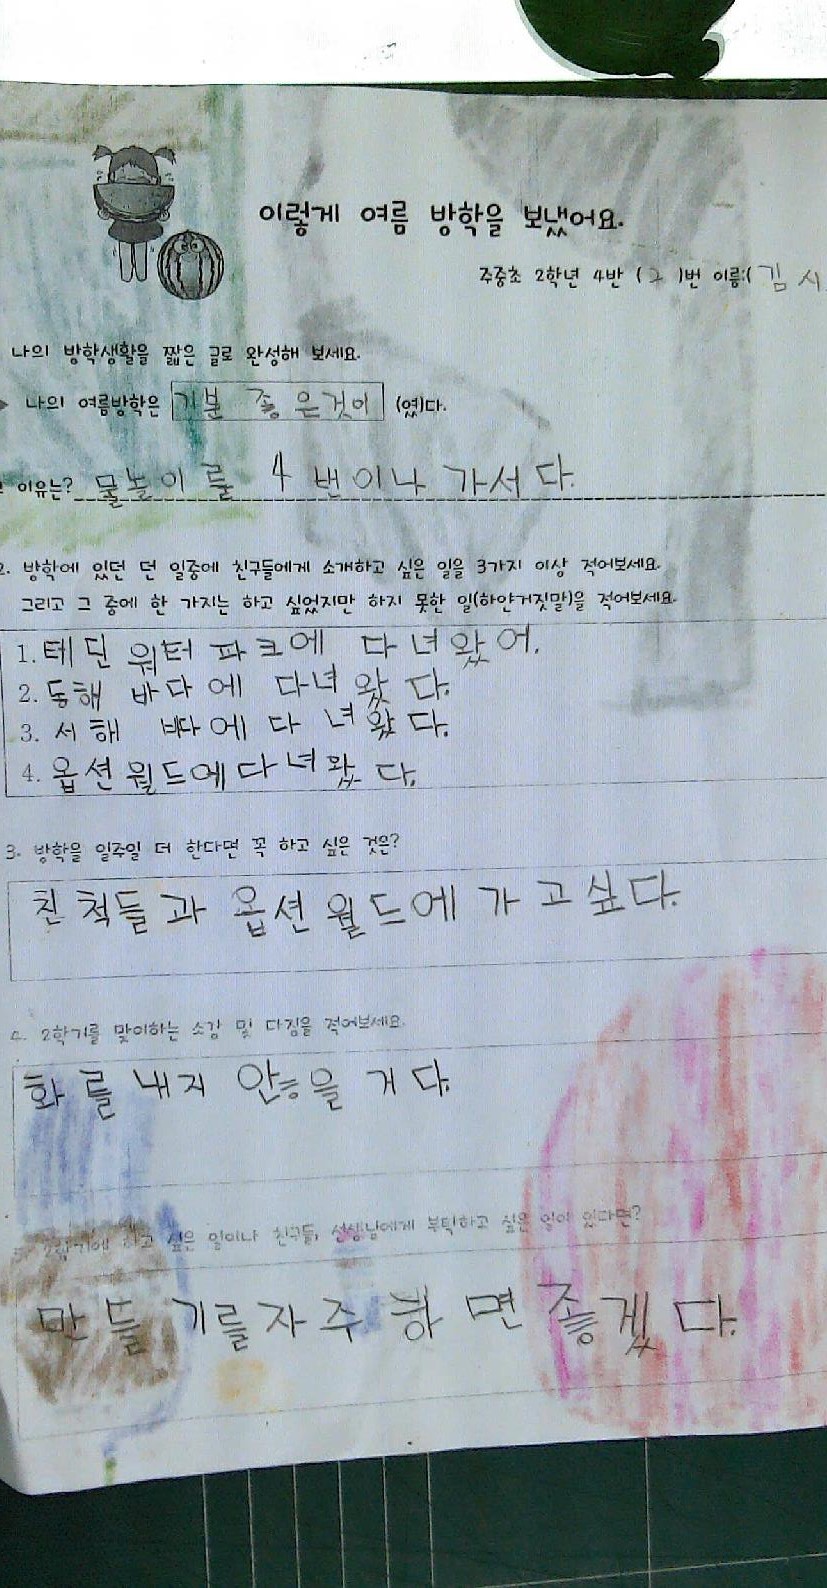 이렇게 여름 방학을 보냈어요.
주중초 2학년 4반 ( )번 이름:( 김 시
나의 방학생활을 짧은 글로 완성해 보세요.
나의 여름방학은 기분 좋은것이 (였)다.
이유는? 물놀이를 4번이나 가서다.
2. 방학에 있던 던 일중에 친구들에게 소개하고 싶은 일을 3가지 이상 적어보세요.
그리고 그 중에 한 가지는 하고 싶었지만 하지 못한 일(하얀거짓말)을 적어보세요.
1. 테딘 워터 파크에 다녀왔어.
2. 동해 바다에 다녀왔다.
3. 서해 바다에 다녀왔다.
4. 옵션월드에다녀왔다.
3. 방학을 일주일 더 한다면 꼭 하고 싶은 것은?
친척들과 옵션월드에 가고싶다.
4. 2학기를 맞이하는 소감 및 다짐을 적어보세요.
화를 내지 않을 거다.
5. 2학기에 하고 싶은 일이나 친구들, 선생님에게 부탁하고 싶은 일이 있다면?
만들기를자주 하면 좋겠다.